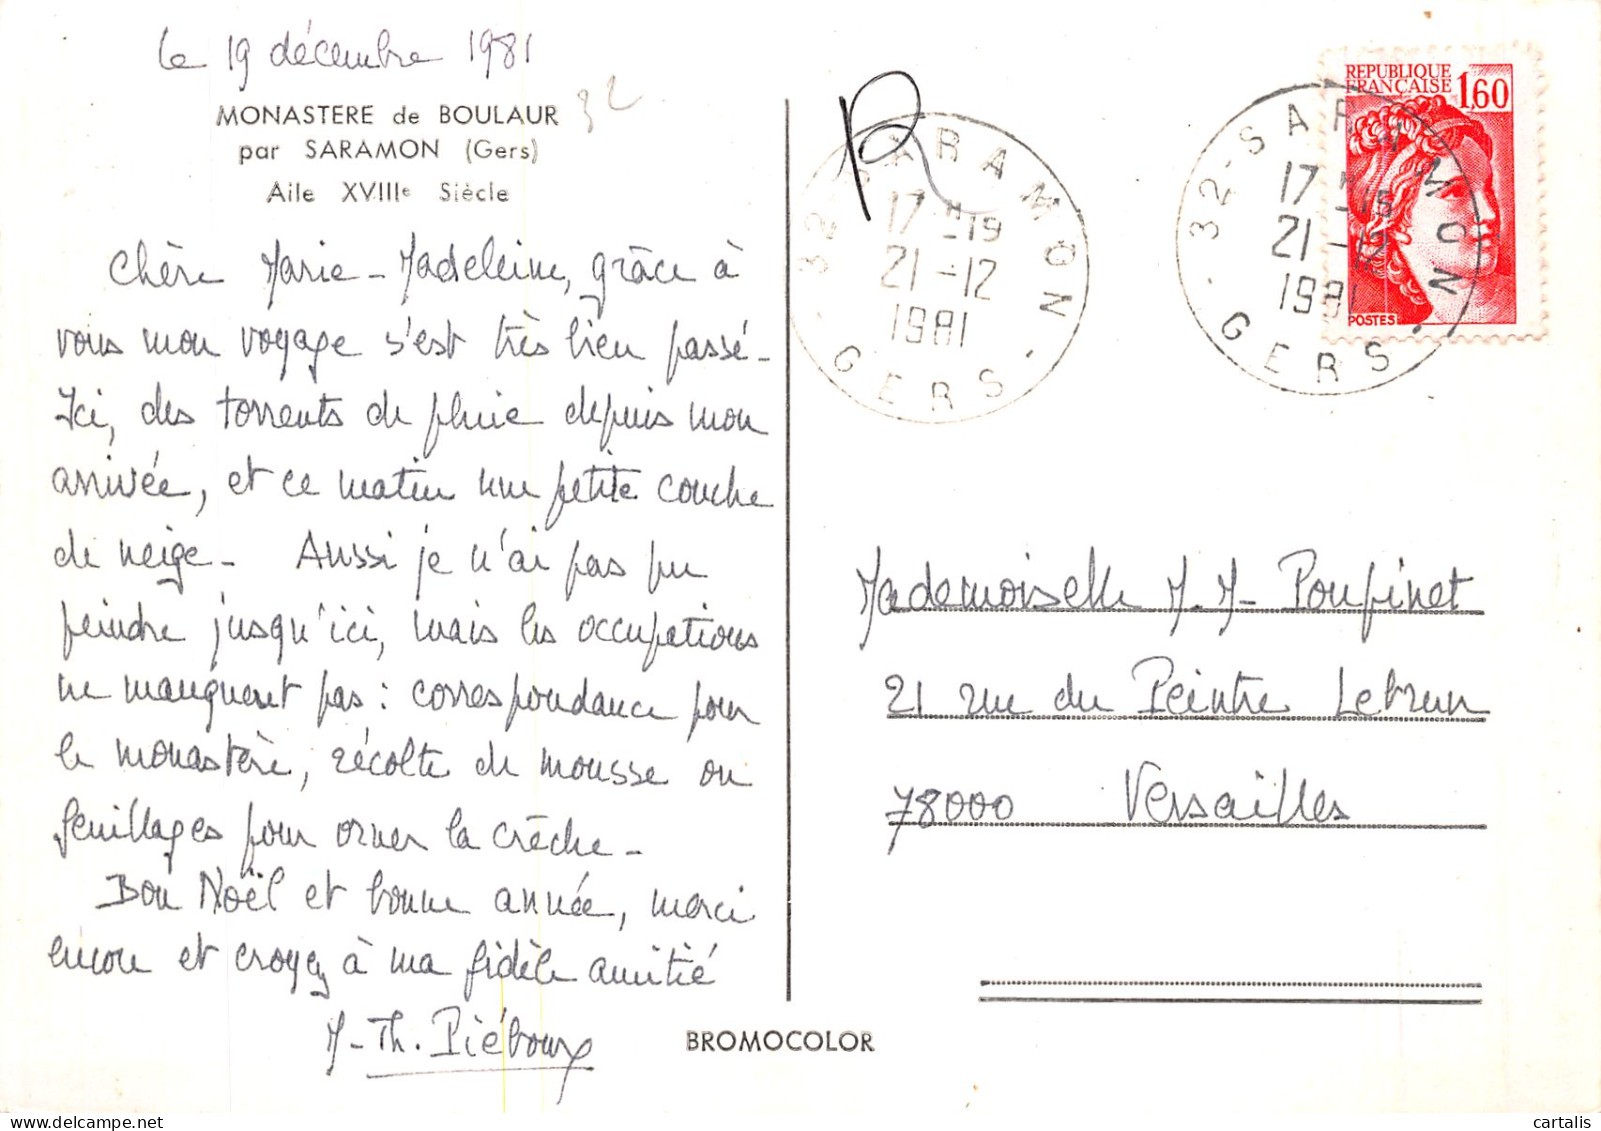 le 19 décembre 1981
MONASTERE de BOULAUR
par SARAMON (Gers)
Aile XVIIIe Siècle
32
Chère Marie-Madeleine, grâce à
vous mon voyage s'est très bien passé-
Ici, des torrents de pluie depuis mon
arrivée, et ce matin une petite couche
de neige- Aussi je n'ai pas pu
peindre jusqu'ici, mais les occupations
ne manquent pas : correspondance pour
le monastère, récolte de mousse ou
feuillages pour orner la crèche-
Bon Noël et bonne année, merci
encore et croyez à ma fidèle amitié
M-Th. Piéboux
BROMOCOLOR
R
32-SARAMON
17 H-19
21-12
1981
- GERS -
32-SARAMON
17 H-19
21-12
1981
- GERS -
REPUBLIQUE
FRANÇAISE 1,60
POSTES
Mademoiselle M. M- Poupinet
21 rue du Peintre Lebrun
78000 Versailles
cartalis
www.delcampe.net